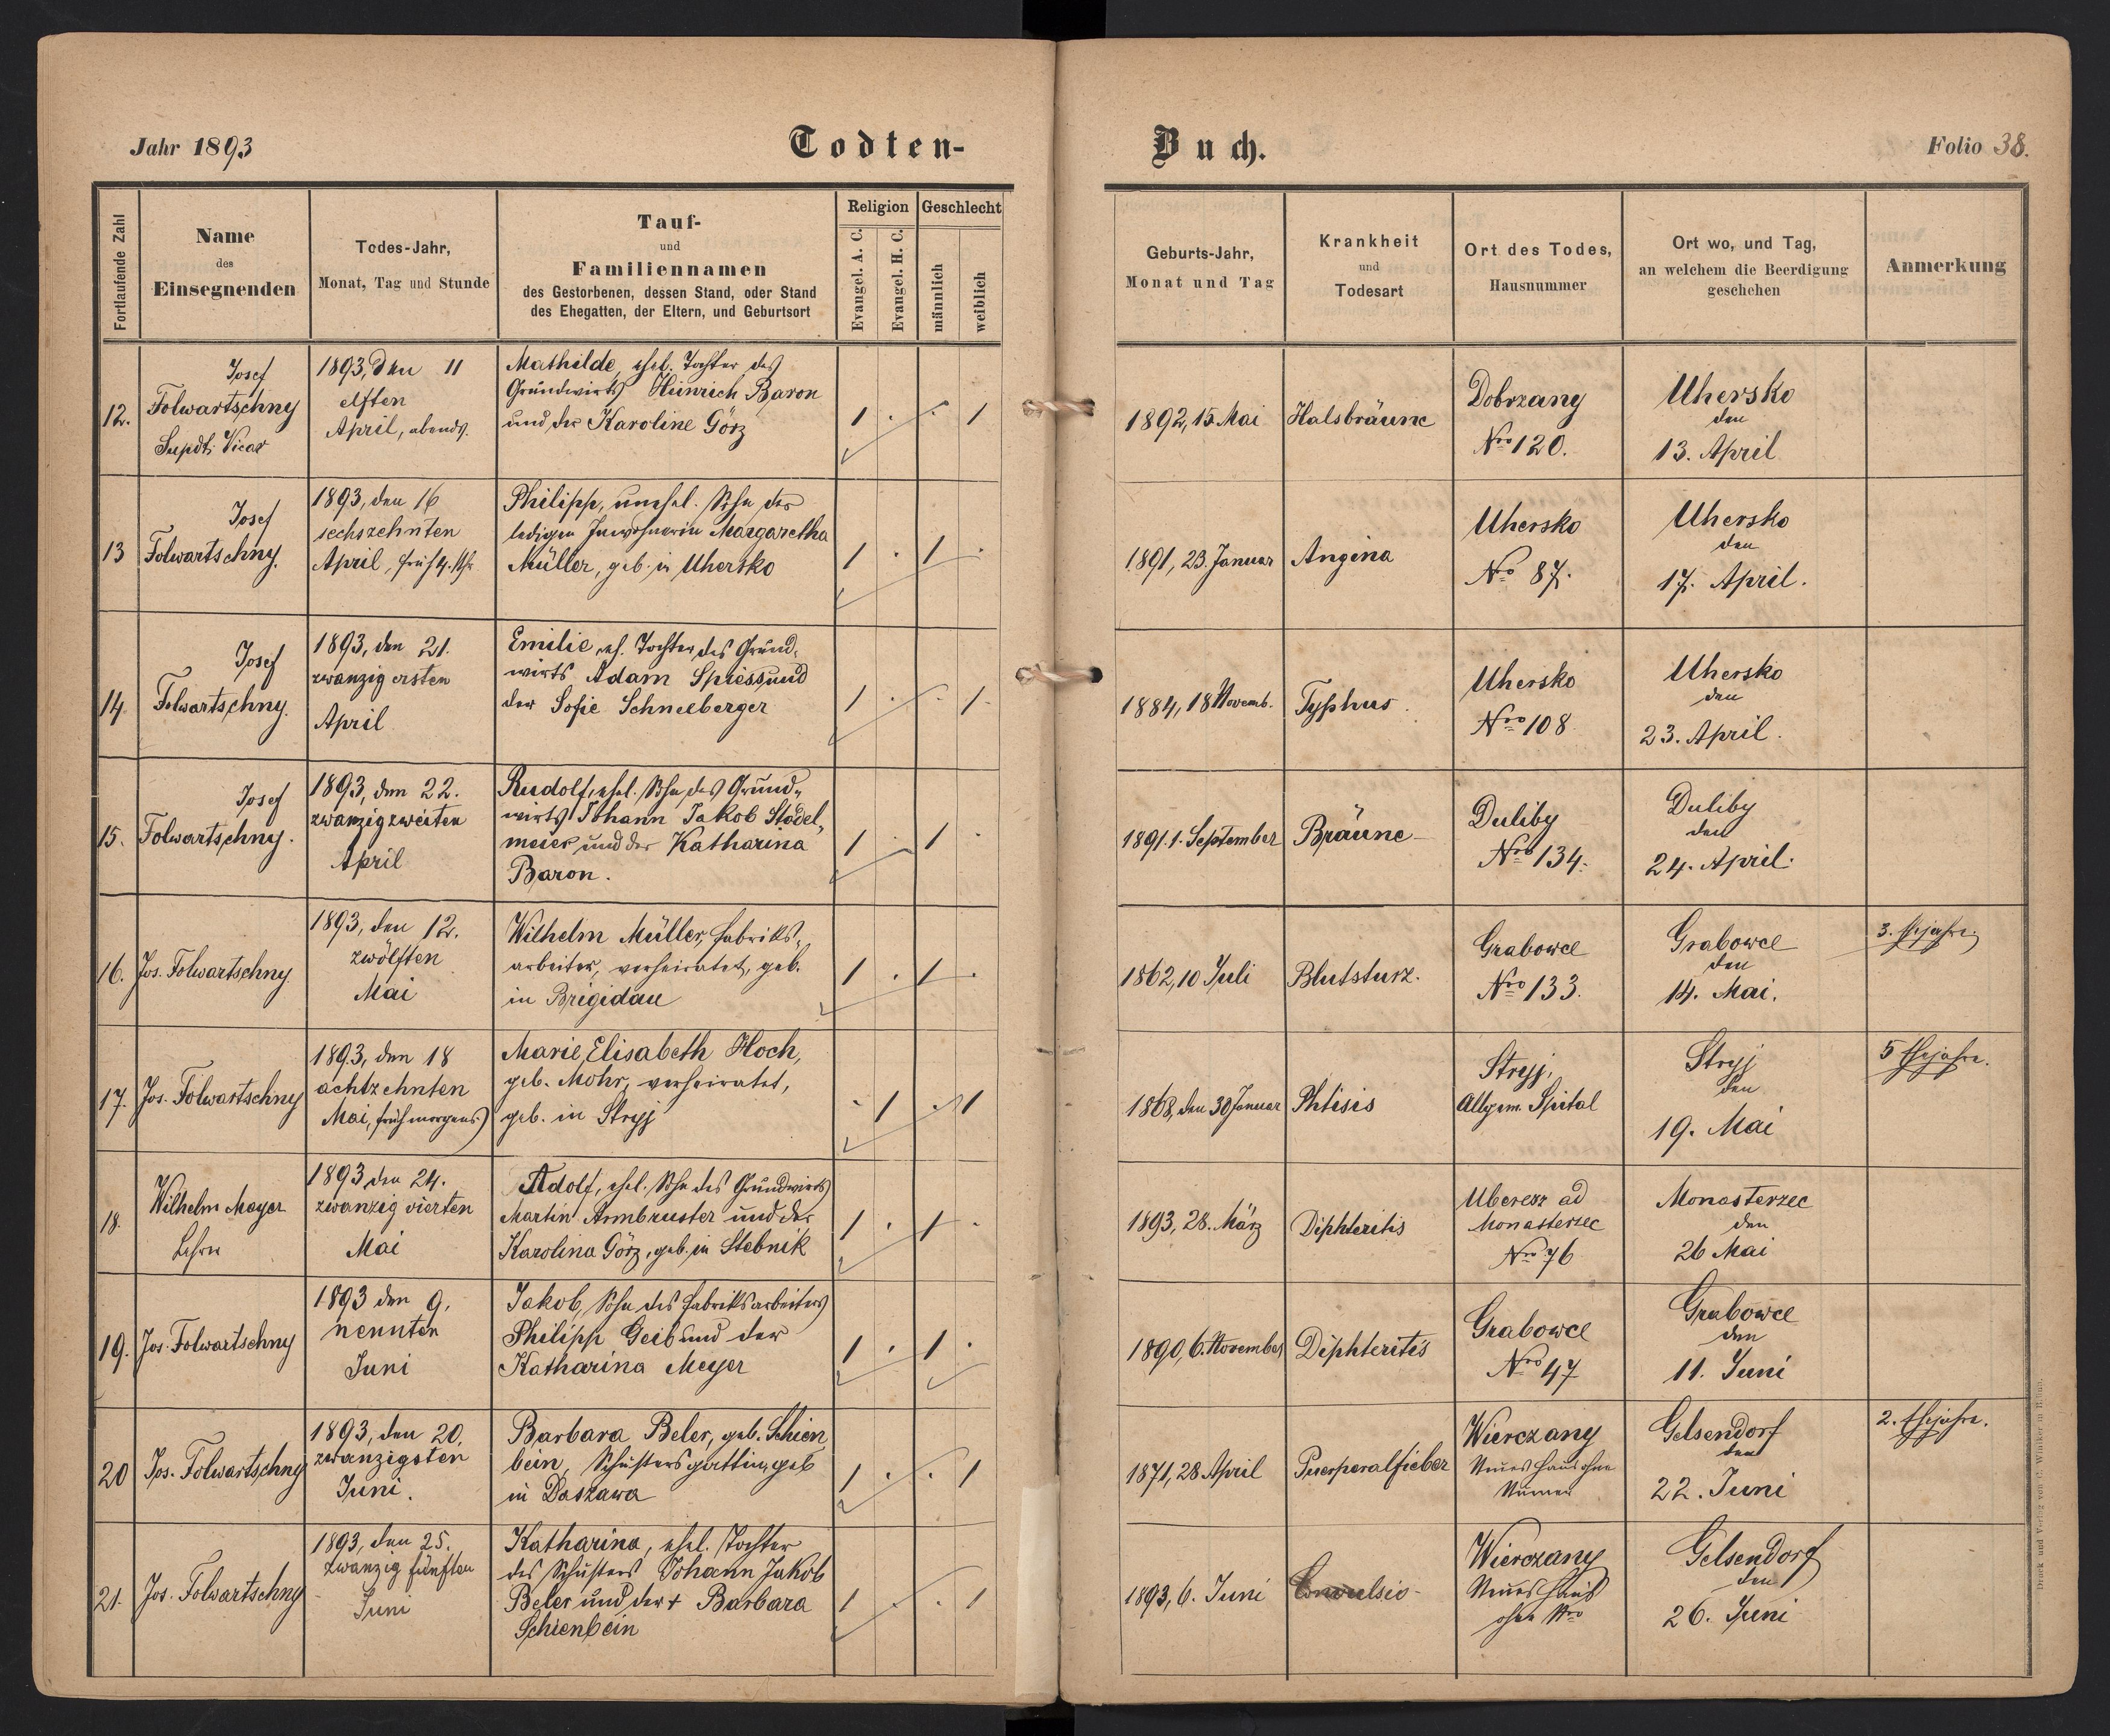 Jahr 1893
Todten-
Buch.
Folio 38.
Fortlaufende Zahl
Name
des
Einsegnenden
Todes-Jahr,
Monat, Tag und Stunde
Tauf-
und
Familiennamen
des Gestorbenen, dessen Stand, oder Stand
des Ehegatten, der Eltern, und Geburtsort
Religion
Evangel. A. C.
Evangel. H. C.
Geschlecht
männlich
weiblich
Geburts-Jahr,
Monat und Tag
Krankheit
und
Todesart
Ort des Todes,
Hausnummer
Ort wo, und Tag,
an welchem die Beerdigung
geschehen
Anmerkung
12.
Josef
Folwartschny
Supdt. Vicar
1893, den 11
elften
April, abends.
Mathilde, ehel. Tochter des
Grundwirts Heinrich Baron
und der Karoline Görz
1 . . 1
1892, 15 Mai
Halsbräune
Dobrzany
Nro 120.
Uhersko
den
13. April
13
Josef
Folwartschny.
1893, den 16
sechszehnten
April, früh 4. Uhr
Philipp, unehel. Sohn der
ledigen Inwohnerin Margaretha
Müller, geb. in Uhersko
1 . 1 .
1891, 23. Januar
Angina
Uhersko
Nro 87.
Uhersko
den
17. April.
14.
Josef
Folwartschny.
1893, den 21.
zwanzigersten
April
Emilie, eh. Tochter des Grund-
wirts Adam Spiess und
der Sofie Schneeberger
1 . . 1.
1884, 18 Novemb.
Typhus.
Uhersko
Nro 108
Uhersko
den
23. April.
15.
Josef
Folwartschny.
1893, den 22.
zwanzigzweiten
April
Rudolf, ehel. Sohn des Grund-
wirts Johann Jakob Stadel-
meier und der Katharina
Baron.
1 . 1 .
1891. 1. September
Bräune
Duliby
Nro 134.
Duliby
den
24. April.
16.
Jos. Folwartschny.
1893, den 12.
zwölften
Mai
Wilhelm Müller, Fabriks-
arbeiter, verheiratet, geb.
in Brigidau
1 . 1 .
1862, 10 Juli
Blutsturz.
Grabowce
Nro 133.
Grabowce
den
14. Mai.
3. Ehejahre.
17.
Jos. Folwartschny
1893, den 18
achtzehnten
Mai, früh morgens
Marie, Elisabeth Hoch,
geb. Mohr, verheiratet,
geb. in Stryj
. 1 . 1
1868, den 30 Januar
Phtisis
Stryj,
Allgem. Spital
Stryj
den
19. Mai
5 Ehejahre.
18.
Wilhelm Mayer
Lehrer
1893 den 24.
zwanzigvierten
Mai
Adolf, ehel. Sohn des Grundwirts
Martin Armbruster und der
Karolina Görz, geb. in Stebnik
1 . 1 .
1893, 28. März
Diphteritis
Uberesz ad
Monasterzec
Nro 76
Monasterzec
den
26 Mai
19.
Jos. Folwartschny
1893 den 9.
nennten
Juni
Jakob, Sohn des Fabriksarbeiters
Philipp Geib und der
Katharina Meyer
1 . 1 .
1890, 6. November
Diphteritis
Grabowce
Nro 47
Grabowce
den
11. Juni
20
Jos. Folwartschny
1893, den 20.
zwanzigsten
Juni.
Barbara Beler, geb. Schien
bein, Schustersgattin, geb
in Daszawa
1 . . 1
1871, 28 April
Puerperalfieber
Wierczany
Neues Haus ohne
Numer
Gelsendorf
den
22. Juni
2. Ehejahre.
21.
Jos. Folwartschny
1893, den 25.
zwanzig fünften
Juni
Katharina, ehel. Tochter
des Schusters Johann Jakob
Beler und der + Barbara
Schienbein
1 . . 1
1893, 6. Juni
Convulsio
Wierczany
Neues Haus
ohne Nro
Gelsendorf
den
26. Juni